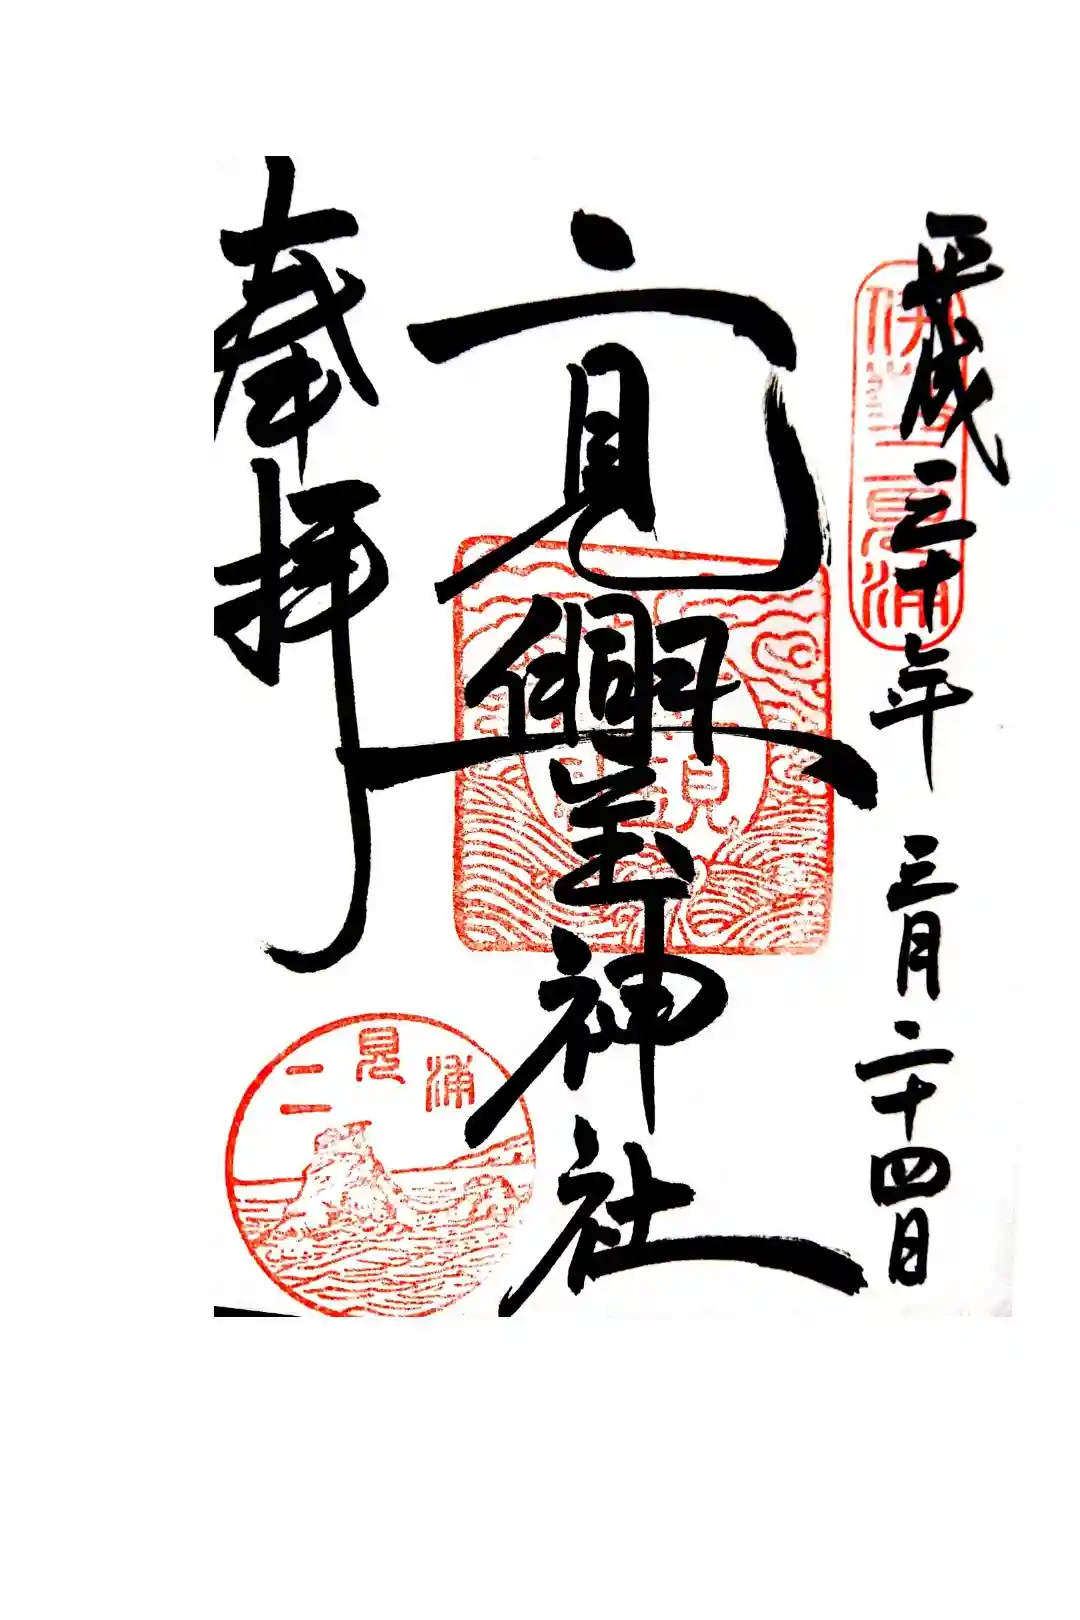 平成三十年 三月二十四日
伊勢二見浦
二見興玉神社
奉拝
二見浦